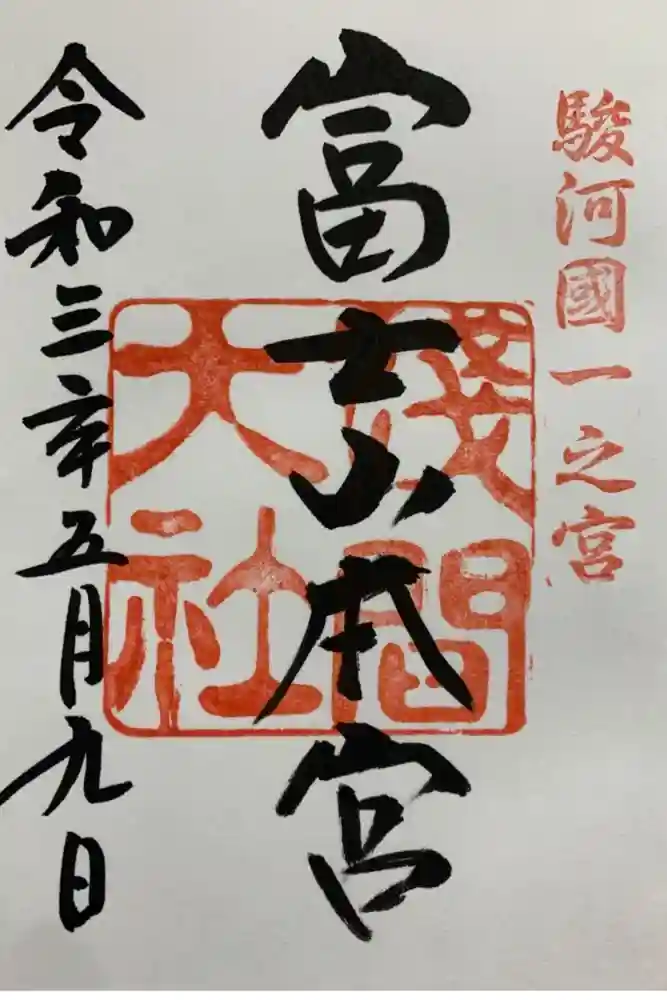 駿河國一之宮
富士山本宮
淺間大社
令和三年五月九日